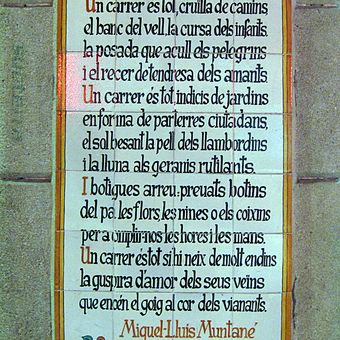 Un carrer és tot, cruïlla de camins
el banc del vell, la cursa dels infants,
la posada que acull els pelegrins
i el recer de tendresa dels amants.
Un carrer és tot, indicis de jardins
en forma de parterres ciutadans,
el sol besant la pell dels llambordins
i la lluna als geranis rutilants.
I botigues arreu: preuats botins
del pa, les flors, les nines o els coixins
per a omplir-nos les hores i les mans.
Un carrer és tot si hi neix de molt endins
la guspira d'amor dels seus veïns
que encén el goig al cor dels vianants.
Miquel-Lluís Muntané